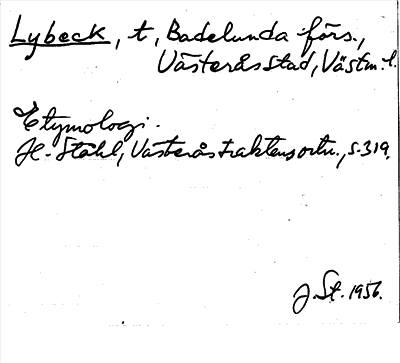 Lybeck, t, Badelunda förs.,
Västerås stad, Västm. l.
Etymologi.
H. Ståhl, Västeråstraktens ortn., s. 319.
J. St. 1956.